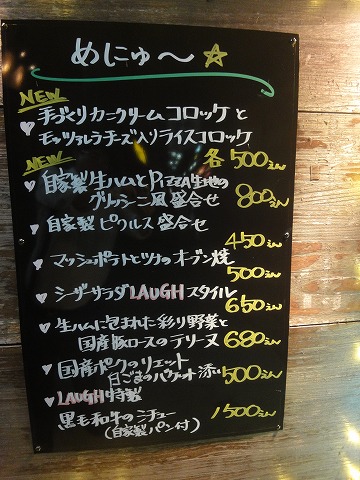 めにゅ〜☆
NEW
手づくりカニクリームコロッケと
モッツァレラチーズ入りライスコロッケ
各500えん
NEW
自家製生ハムとPIZZA生地の
グリッシーニ風盛合せ 800えん
自家製ピクルス盛合せ
450えん
マッシュポテトとツナのオーブン焼
500えん
シーザーサラダLAUGHスタイル
650えん
生ハムに包まれた彩り野菜と
国産豚ロースのテリーヌ 680えん
国産ポークのリエット
白ごまのバゲット添い 500えん
LAUGH特製
黒毛和牛のシチュー 1500えん
(自家製パン付)